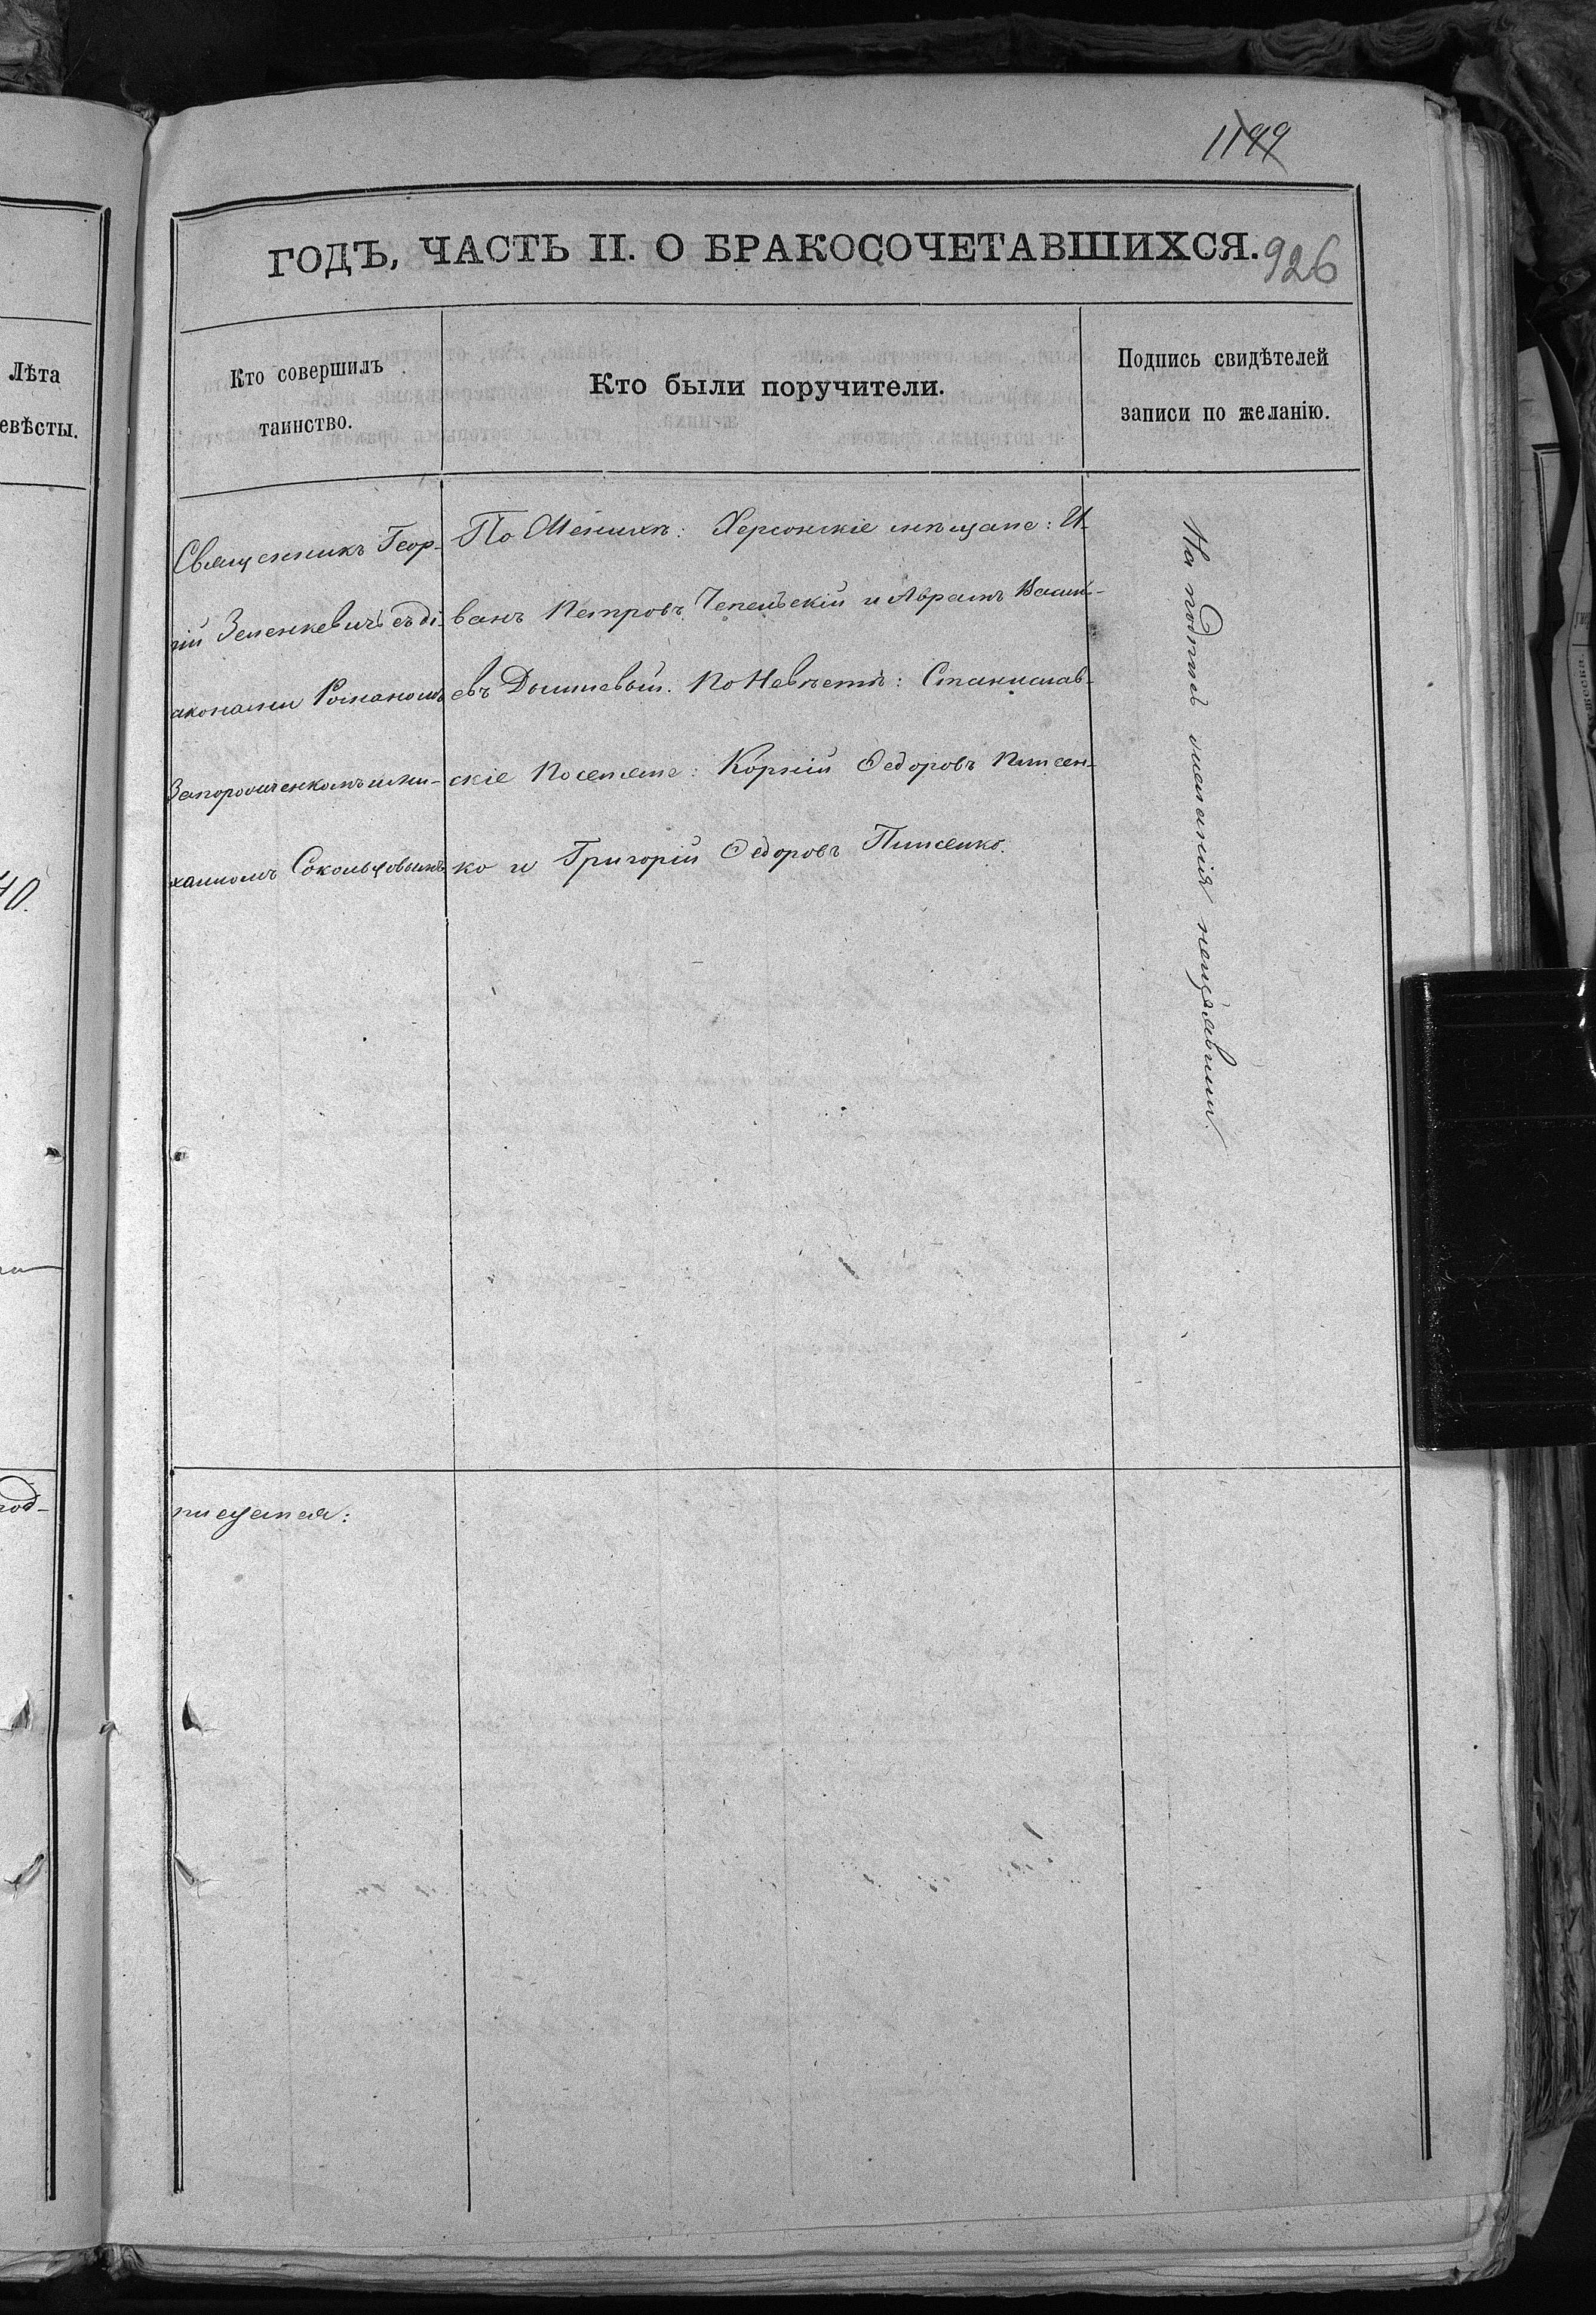 1199
ГОДЪ, ЧАСТЬ II. О БРАКОСОЧЕТАВШИХСЯ. 926
Лѣта
евѣсты.
Кто совершилъ
таинство.
Кто были поручители.
Подпись свидѣтелей
записи по желанію.
40.
год-
Священникъ Геор-
гій Зеленкевичъ съ ді-
аконами Романомъ
Запорощенкомъ и Ми-
хаиломъ Сокольцовымъ
По Женихѣ: Херсонскіе мѣщане: И-
ванъ Петровъ Чепельскій и Абрамъ Васил-
евъ Дышлевый. По Невѣстѣ: Станислав-
скіе Поселяне: Корній Ѳедоровъ Плисен-
ко и Григорій Ѳедоровъ Плисенко.
На подпис желанія неизъявили
писуется: